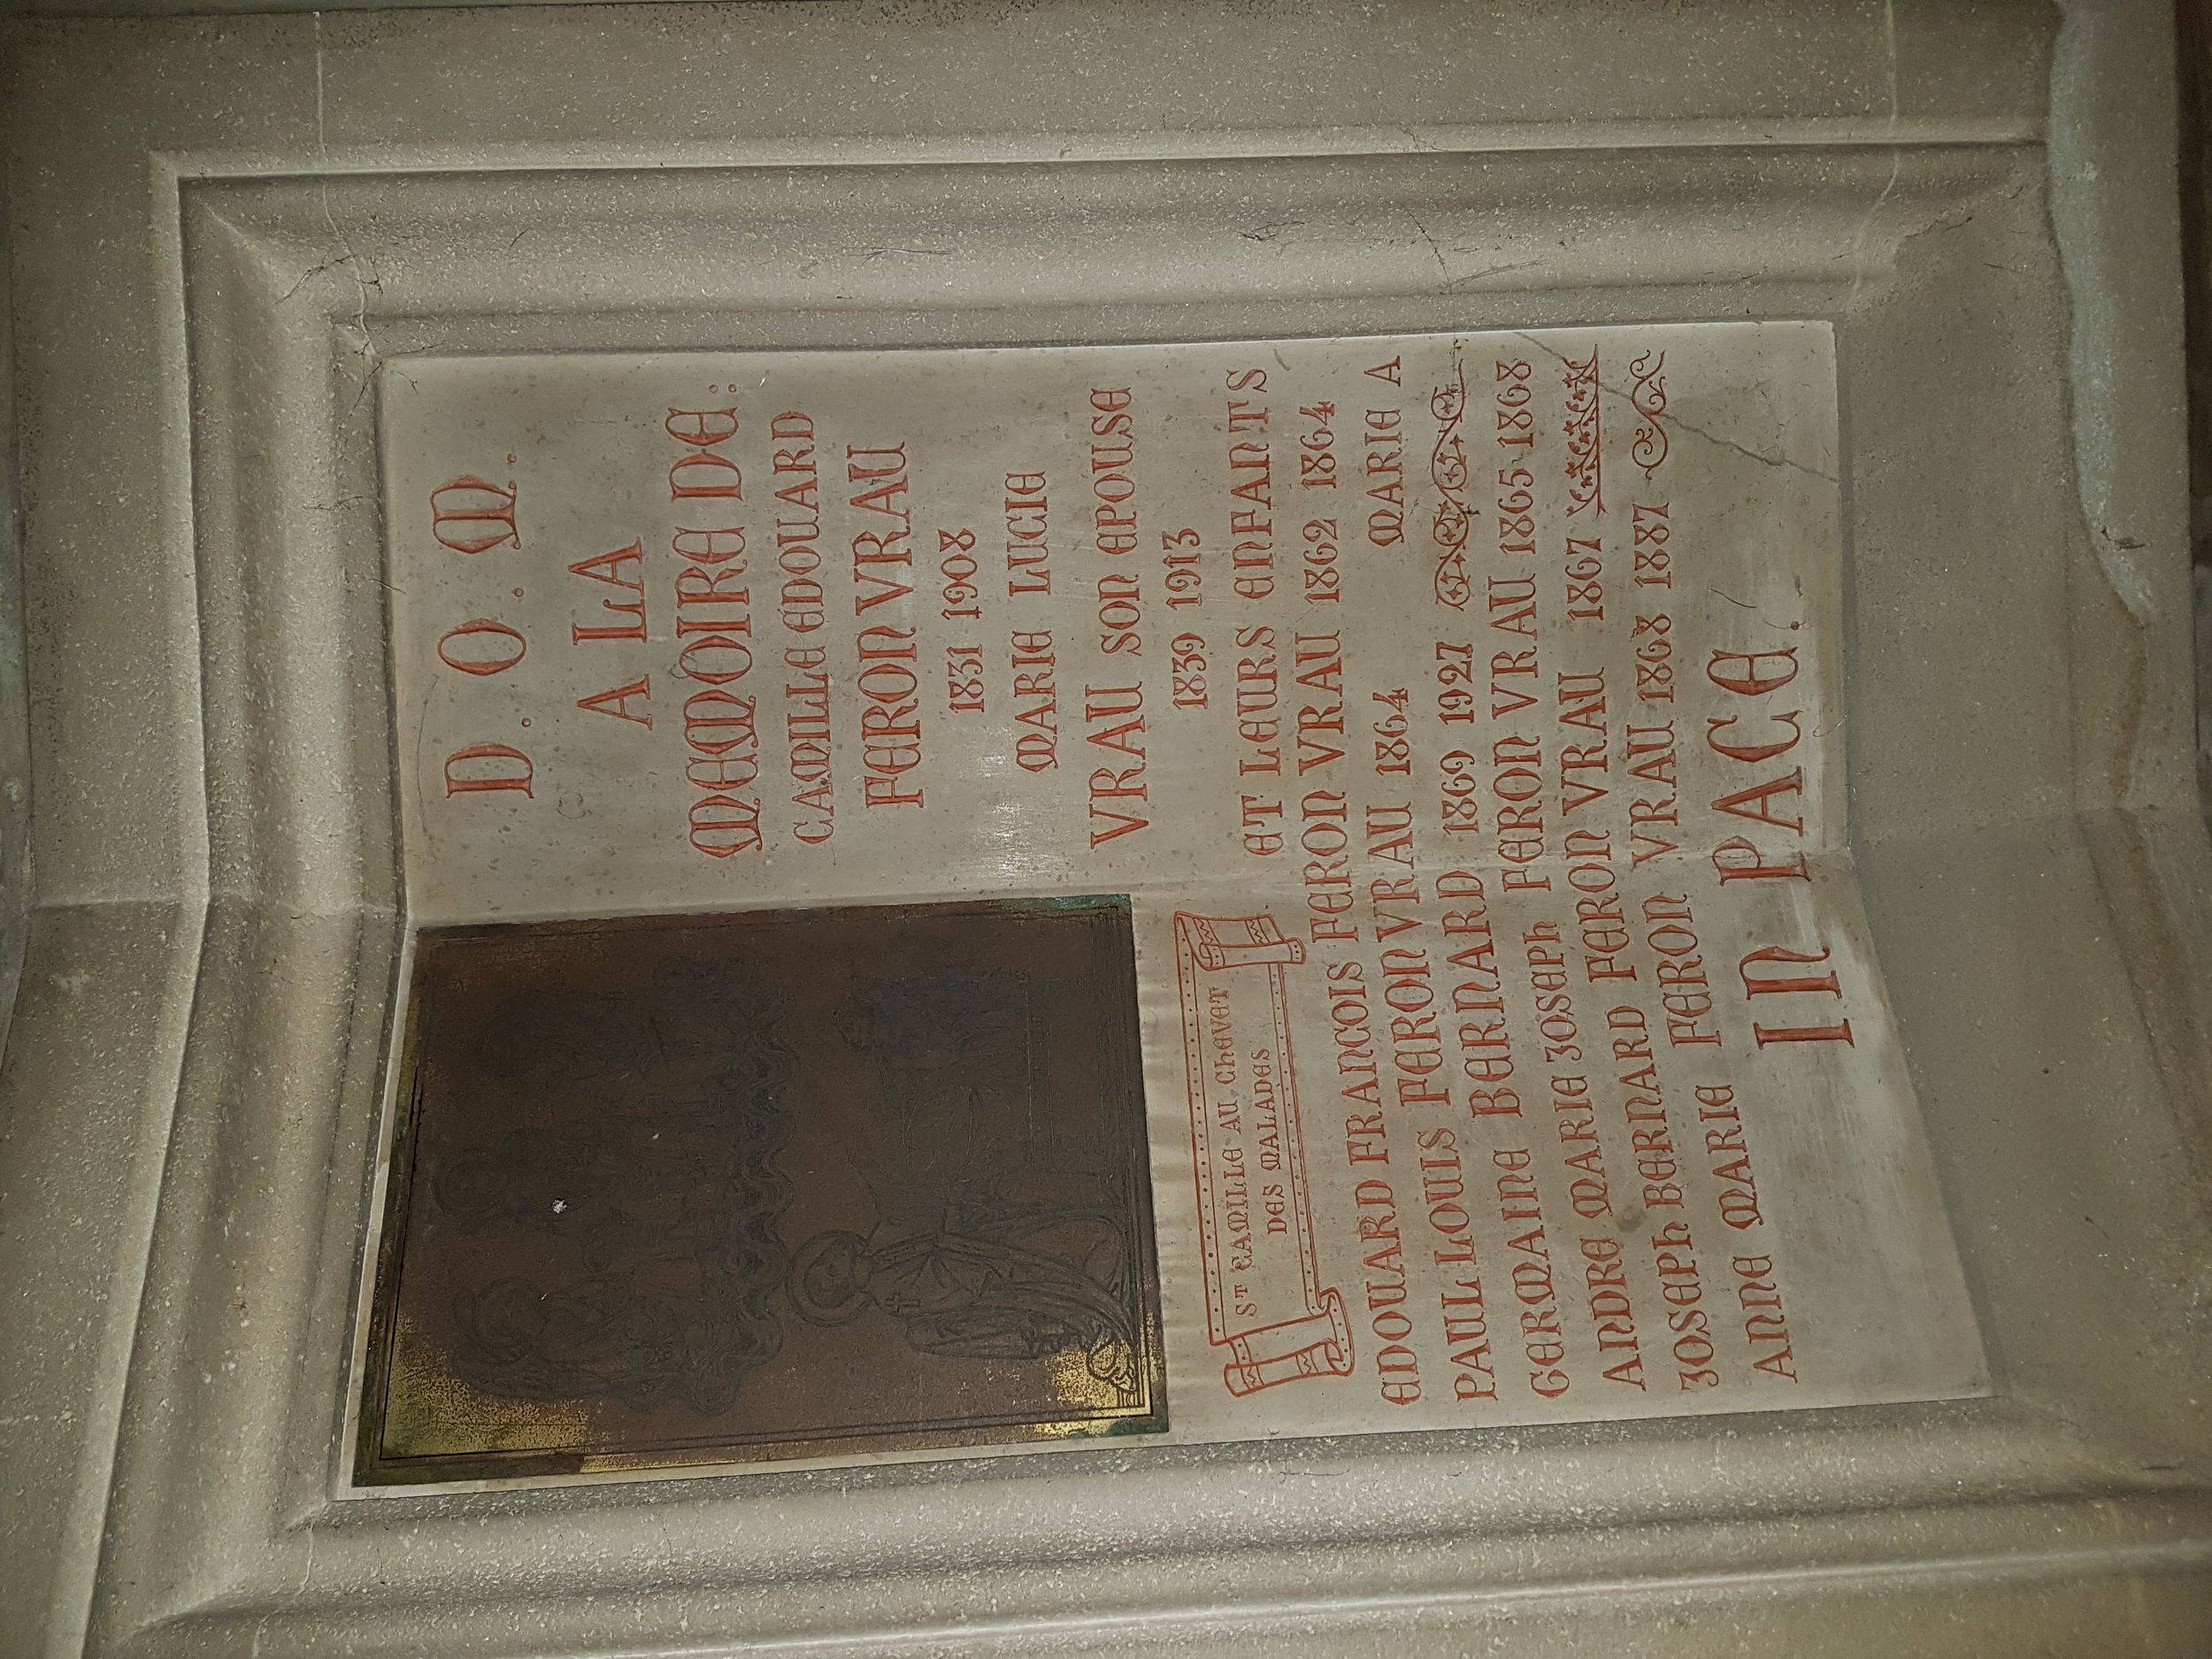 D . O . M .
A LA
MEMOIRE DE :
CAMILLE EDOUARD
FERON VRAU
1831 1908
MARIE LUCIE
VRAU SON EPOUSE
1839 1913
ST CAMILLE AU CHEVET
DES MALADES
ET LEURS ENFANTS
EDOUARD FRANCOIS FERON VRAU 1862 1864
PAUL LOUIS FERON VRAU 1864 MARIE A
GERMAINE BERNARD 1869 1927
ANDRE MARIE JOSEPH FERON VRAU 1865-1868
JOSEPH BERNARD FERON VRAU 1867
ANNE MARIE FERON VRAU 1868 1887
IN PACE.